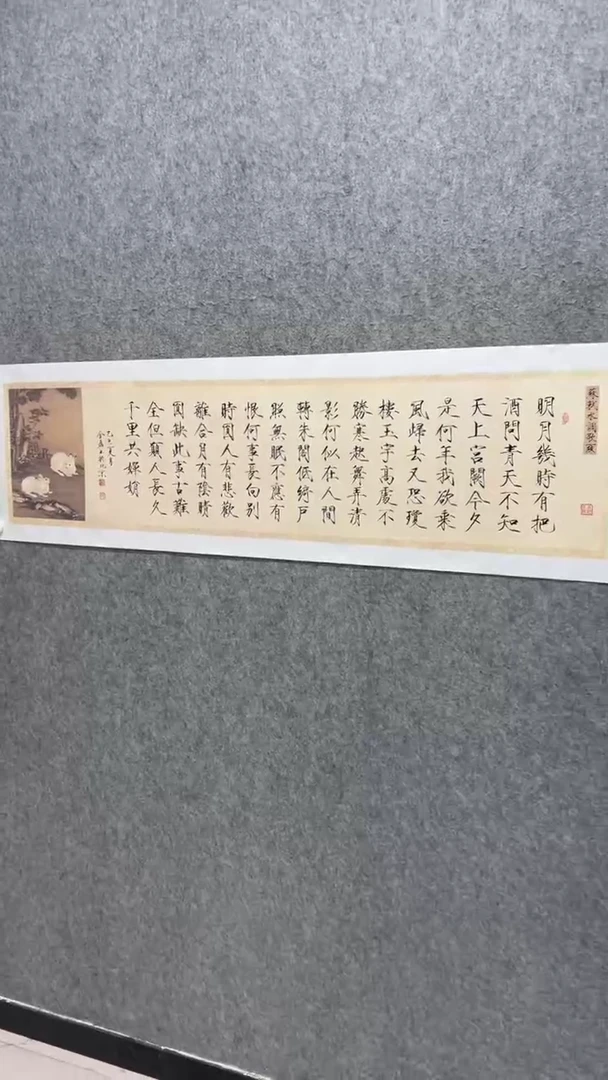 蘇軾水調歌頭
明月幾時有把
酒問青天不知
天上宮闕今夕
是何年我欲乘
風歸去又恐瓊
樓玉宇高處不
勝寒起舞弄清
影何似在人間
轉朱閣低綺戶
照無眠不應有
恨何事長向別
時圓人有悲歡
離合月有陰晴
圓缺此事古難
全但願人長久
千里共嬋娟
乙巳